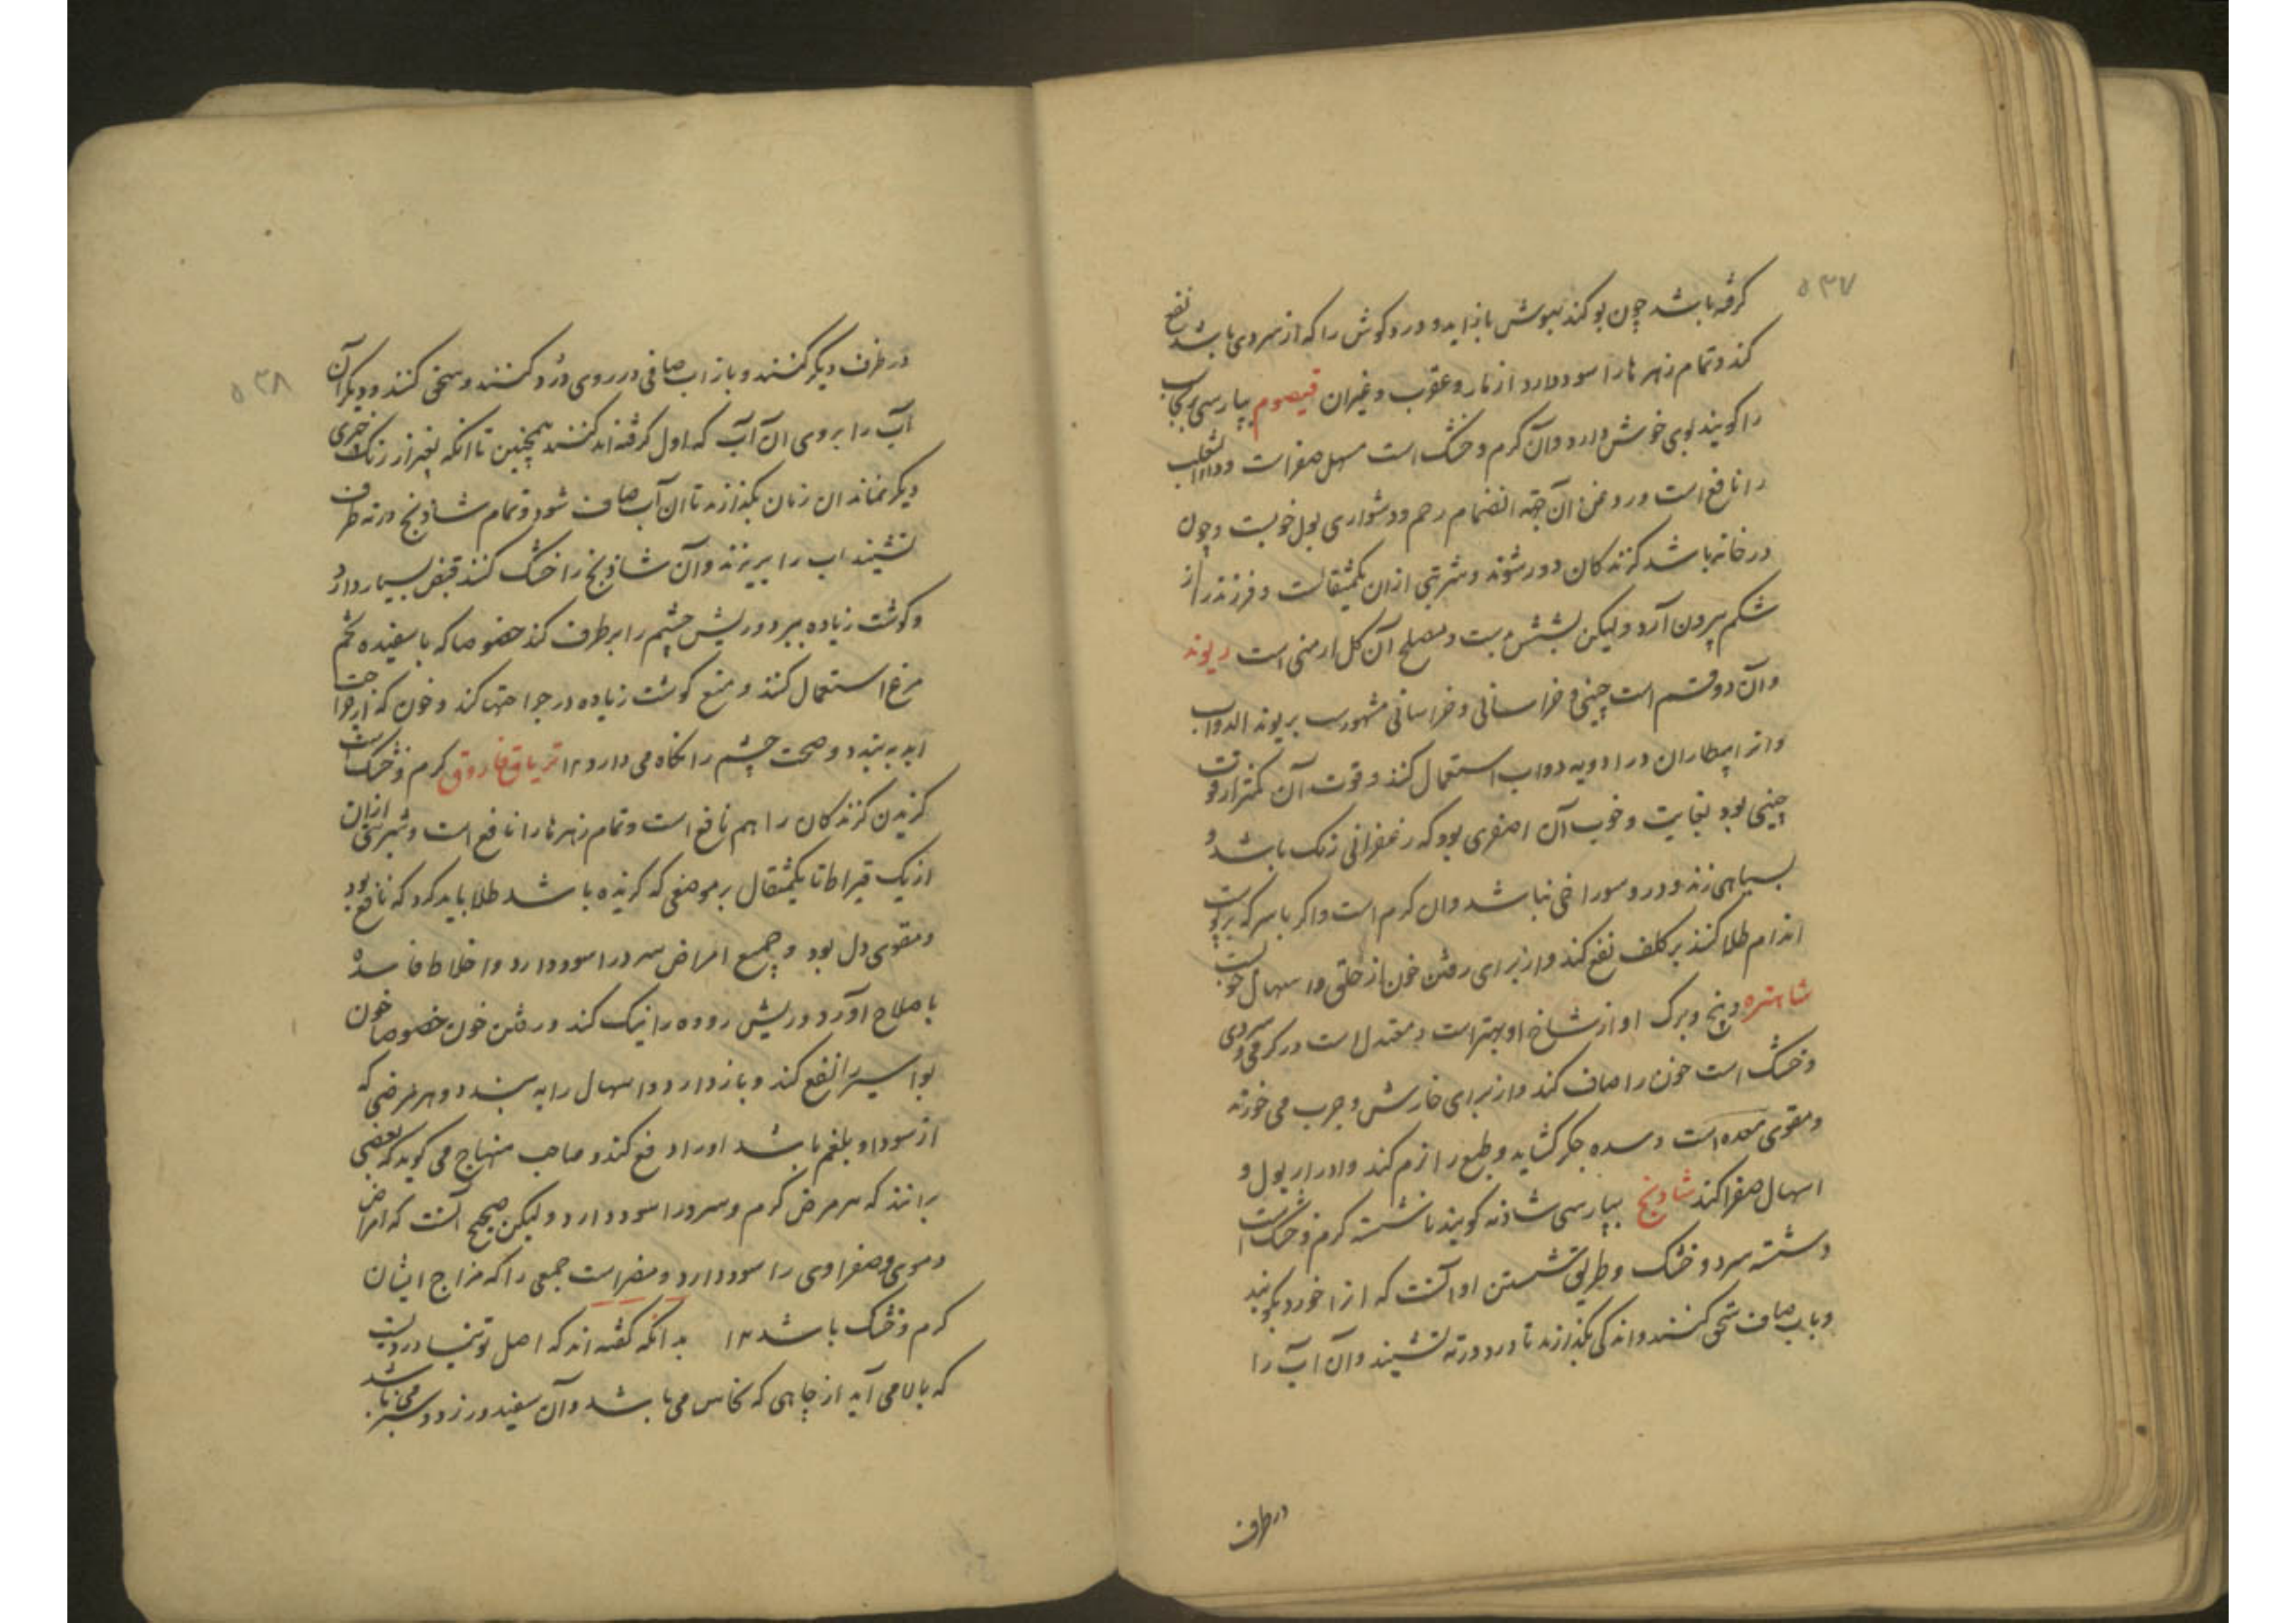 ۵۳۷
گرفته باشد چون بو کند ببوش باز اید و درد کوش را که از سردی باشد نفع
کند و تمام زهرها را سود دارد از مار و عقرب و غیران قیصوم بپارسی
را کویند بوی خوش دارد و آن کرم و خشک است مسهل صفراست و داء الثعلب
را نافع است و روغن آن جهة انضمام رحم و دشواری بول خوبست و چون
در خانه باشد کزندکان دور شوند و شربتی ازان یکمثقالست و فرزند را از
شکم بیرون آرد و لیکن مصلح آن کل ارمنی است ریوند
و آن دو قسم است چینی و خراسانی و خراسانی مشهورست بریوند الدواب
و انرا بیطاران در ادویه دواب استعمال کنند و قوت آن کمتر از قوت
چینی بود بغایت و خوب آن اصفری بود که زعفرانی رنک باشد و
بسیاهی زند و درو سوراخی نباشد و ان کرم است و اکر با سرکه بر پوست
اندام طلا کنند بر کلف نفع کند و از برای رفتن خون از حلق و اسهال خوبست
شاهتره و بیخ و برک او از شاخ او بهتر است و معتدل است در کرمی و سردی
و خشک است خون را صاف کند و از برای خارش و جرب می خورند
و مقوی معده است و سده جکر کشاید و طبع را نرم کند و ادرار بول و
اسهال صفرا کند شادنج بپارسی شادنه کویند ناشسته کرم و خشک است
و شسته سرد و خشک و طریق شستن او آنست که انرا خورد بکوبند
و باب صاف سحق کنند و اندکی بگذارند تا درد در ته نشیند و آن آب را
در ظرف
۵۳۸
در ظرف دیکر کنند و باز اب صافی در روی درد کنند و سحق کنند و دیکر آن
آب را بروی ان آب که اول کرفته اند کنند همچنین تا انکه بغیر از رنک چیزی
دیکر نماند ان زمان بگذارند تا ان آب صاف شود و تمام شادنج در ته ظرف
نشیند اب را بریزند و آن شادنج را خشک کنند قبض بسیار دارد
و کوشت زیاده ببرد و ریش چشم را برطرف کند خصوصا که با سفیده تخم
مرغ استعمال کنند و منع کوشت زیاده در جراحتها کند و خون که از جراحت
اید به بندد و صحت چشم را نکاه می دارد ۱۲ تریاق فاروق کرم و خشک است
کزیدن کزندکان را هم نافع است و تمام زهرها را نافع است و شربتی ازان
از یک قیراط تا یکمثقال بر موضعی که کزیده باشد طلا باید کرد که نافع بود
و مقوی دل بود و جمیع امراض سرد را سود دارد و اخلاط فاسده
با صلاح آورد و ریش روده را نیک کند و رفتن خون خصوصا خون
بواسیر را نفع کند و باز دارد و اسهال را به بندد و هر مرضی که
از سودا و بلغم باشد او را دفع کند و صاحب منهاج می کوید که بعضی
برانند که هر مرض کرم و سرد را سود دارد و لیکن صحیح آنست که امراض
دموی و صفراوی را سود دارد و مضر است جمعی را که مزاج ایشان
کرم و خشک باشد ۱۲ بدانکه کفته اند که اصل توتیا دودیست
که بالا می آید از چاهی که نحاس می باشد و آن سفید و زرد و سبز می باشد